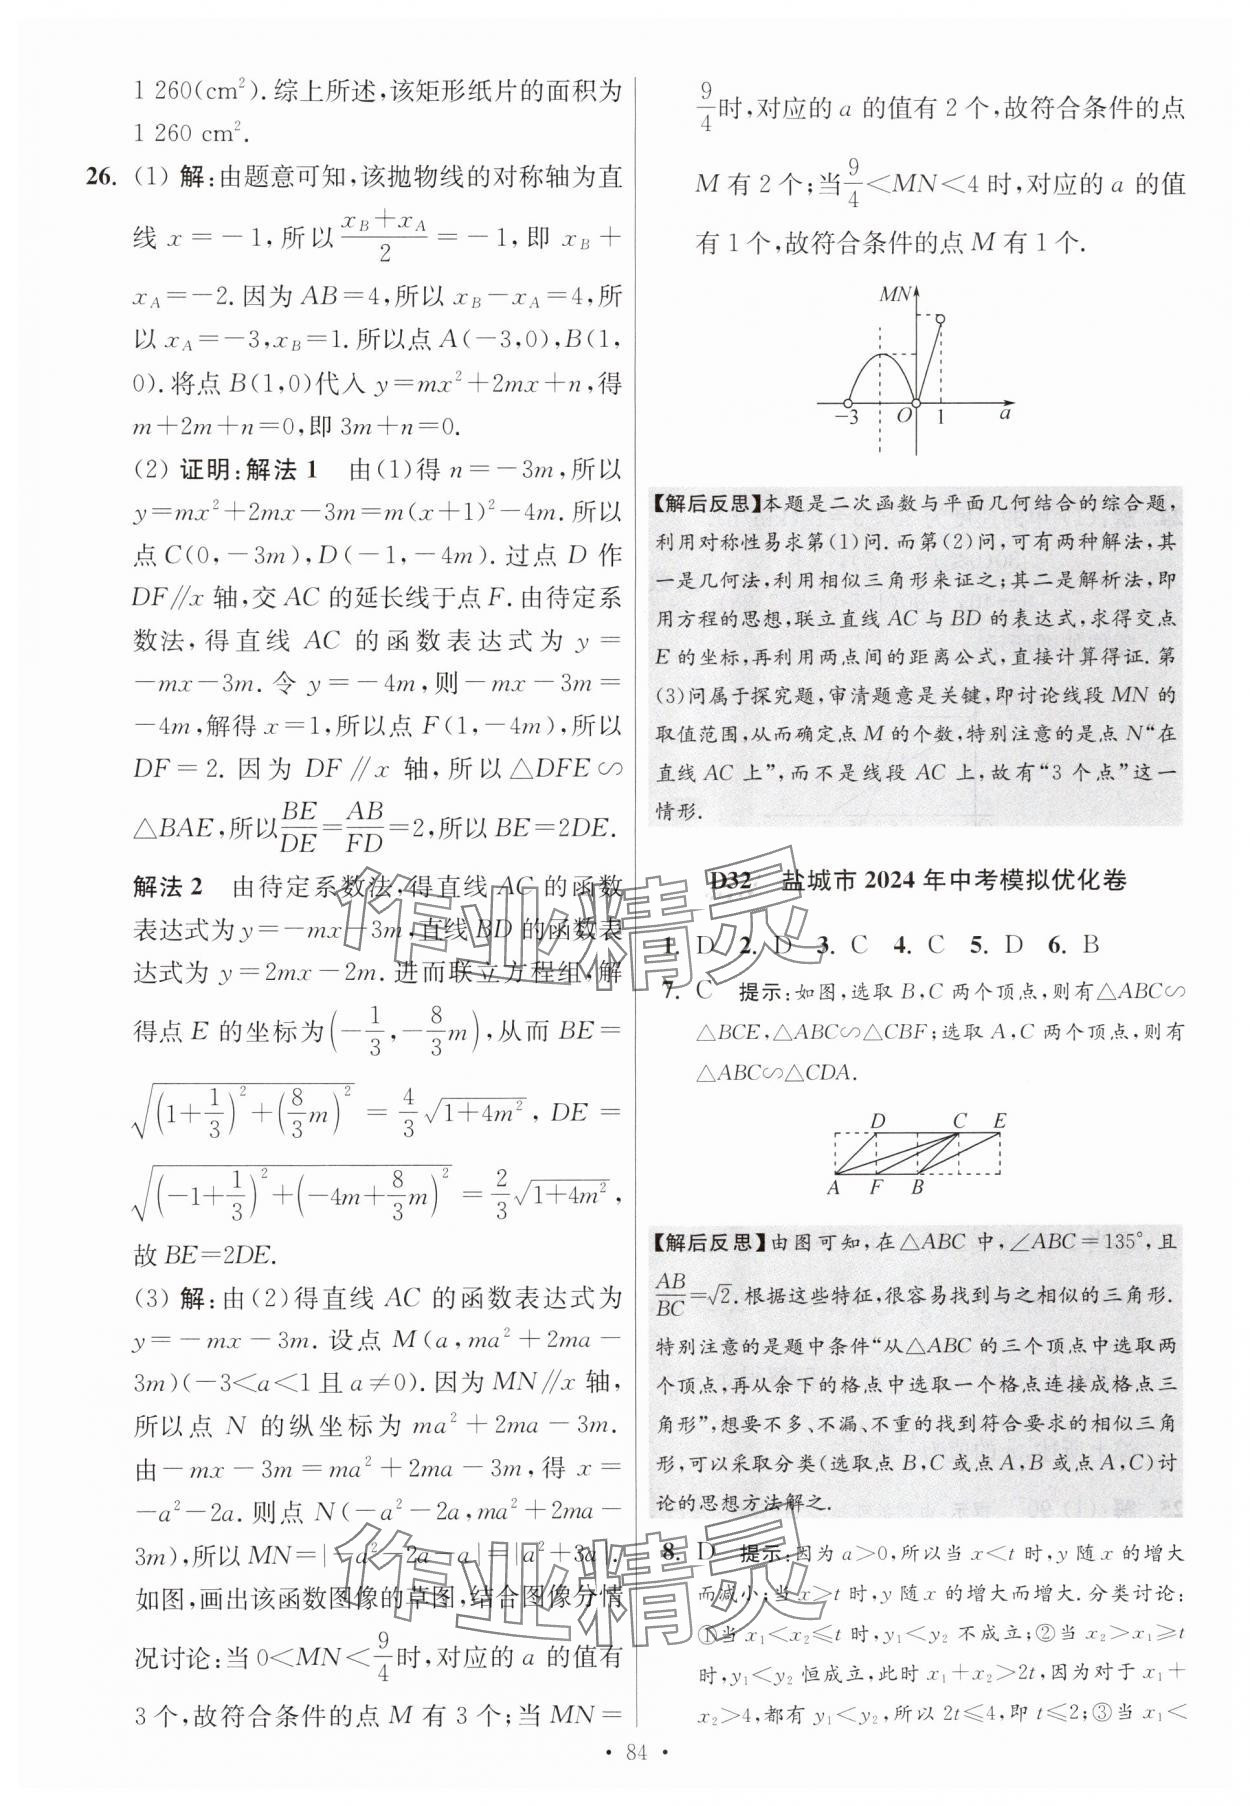 1 260(cm²).综上所述,该矩形纸片的面积为
1 260 cm².
26. (1) 解:由题意可知,该抛物线的对称轴为直
线 x=-1,所以(x_B+x_A)/2=-1,即 x_B+
x_A=-2.因为 AB=4,所以 x_B-x_A=4,所
以 x_A=-3,x_B=1.所以点 A(-3,0),B(1,
0).将点 B(1,0)代入 y=mx²+2mx+n,得
m+2m+n=0,即 3m+n=0.
(2) 证明:解法 1 由(1)得 n=-3m,所以
y=mx²+2mx-3m=m(x+1)²-4m.所以
点 C(0,-3m),D(-1,-4m).过点 D 作
DF∥x 轴,交 AC 的延长线于点 F.由待定系
数法,得直线 AC 的函数表达式为 y=
-mx-3m.令 y=-4m,则-mx-3m=
-4m,解得 x=1,所以点 F(1,-4m),所以
DF=2.因为 DF∥x 轴,所以△DFE∽
△BAE,所以BE/DE=AB/FD=2,所以 BE=2DE.
解法 2 由待定系数法,得直线 AC 的函数
表达式为 y=-mx-3m,直线 BD 的函数表
达式为 y=2mx-2m.进而联立方程组,解
得点 E 的坐标为(-1/3,-8/3m),从而 BE=
√((1+1/3)²+(8/3m)²)=4/3√(1+4m²),DE=
√((-1+1/3)²+(-4m+8/3m)²)=2/3√(1+4m²),
故 BE=2DE.
(3) 解:由(2)得直线 AC 的函数表达式为
y=-mx-3m.设点 M(a,ma²+2ma-
3m)(-3<a<1且a≠0).因为 MN∥x 轴,
所以点 N 的纵坐标为 ma²+2ma-3m.
由-mx-3m=ma²+2ma-3m,得 x=
-a²-2a.则点 N(-a²-2a,ma²+2ma-
3m),所以 MN=|-a²-2a-a|=|a²+3a|.
如图,画出该函数图像的草图,结合图像分情
况讨论:当 0<MN<9/4时,对应的 a 的值有
3个,故符合条件的点 M 有 3 个;当 MN=
9/4时,对应的 a 的值有 2 个,故符合条件的点
M 有 2 个;当9/4<MN<4时,对应的 a 的值
有 1 个,故符合条件的点 M 有 1 个.
MN
-3 O 1 a
【解后反思】本题是二次函数与平面几何结合的综合题,
利用对称性易求第(1)问.而第(2)问,可有两种解法,其
一是几何法,利用相似三角形来证之;其二是解析法,即
用方程的思想,联立直线 AC 与 BD 的表达式,求得交点
E 的坐标,再利用两点间的距离公式,直接计算得证.第
(3)问属于探究题,审清题意是关键,即讨论线段 MN 的
取值范围,从而确定点 M 的个数,特别注意的是点 N“在
直线 AC 上”,而不是线段 AC 上,故有“3 个点”这一
情形.
D32 盐城市 2024 年中考模拟优化卷
1. D 2. D 3. C 4. C 5. D 6. B
7. C 提示:如图,选取 B,C 两个顶点,则有△ABC∽
△BCE,△ABC∽△CBF;选取 A,C 两个顶点,则有
△ABC∽△CDA.
D C E
A F B
【解后反思】由图可知,在△ABC 中,∠ABC=135°,且
AB/BC=√2.根据这些特征,很容易找到与之相似的三角形.
特别注意的是题中条件“从△ABC 的三个顶点中选取两
个顶点,再从余下的格点中选取一个格点连接成格点三
角形”,想要不多、不漏、不重的找到符合要求的相似三角
形,可以采取分类(选取点 B,C 或点 A,B 或点 A,C)讨
论的思想方法解之.
8. D 提示:因为 a>0,所以当 x<t 时,y 随 x 的增大
而减小;当 x>t 时,y 随 x 的增大而增大.分类讨论:
①当 x₁<x₂≤t 时,y₁<y₂ 不成立;②当 x₂>x₁≥t
时,y₁<y₂ 恒成立,此时 x₁+x₂>2t,因为对于 x₁+
x₂>4,都有 y₁<y₂,所以 2t≤4,即 t≤2;③当 x₁<
· 84 ·
作业精灵
作业精灵